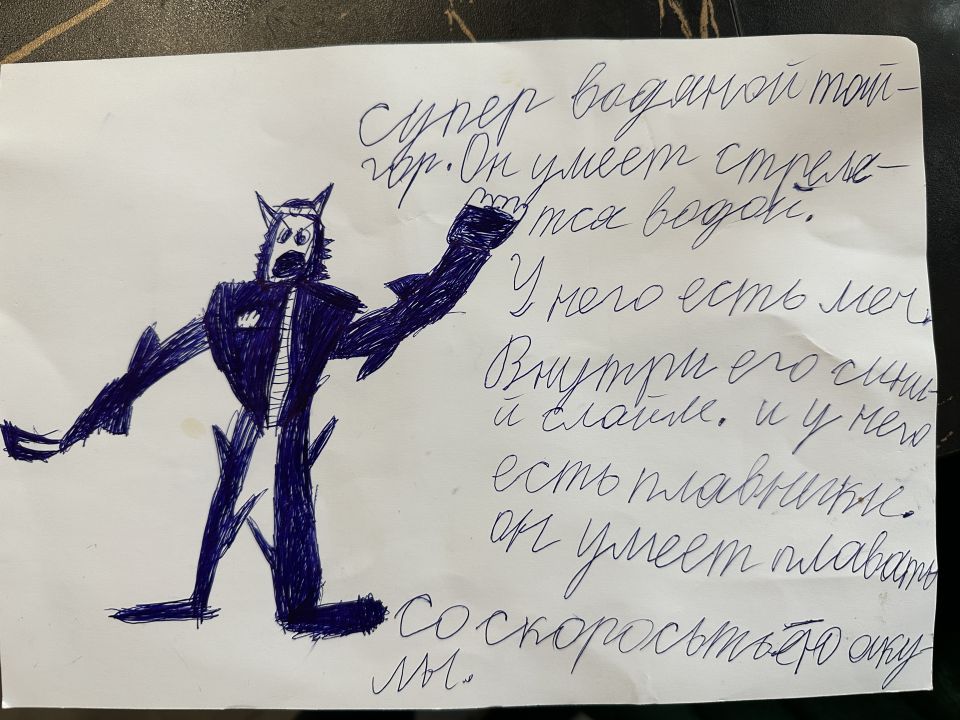 супер водяной тай-
гер. Он умеет стреля-
тся водой.
У него есть меч.
Внутри его сини-
й слайм. и у него
есть плавники.
он умеет плавать
со скоросьтью аку
лы.